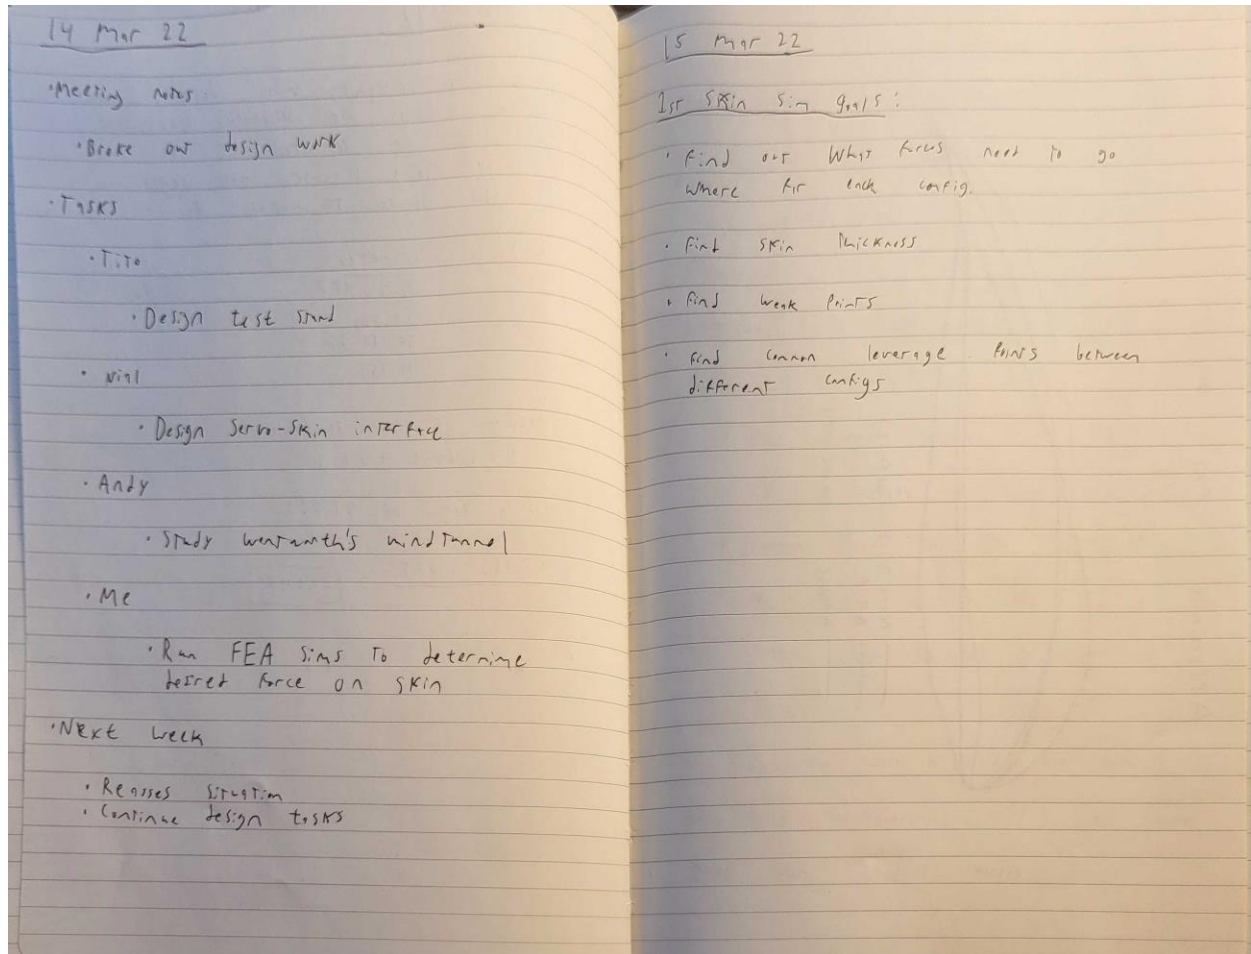 14 Mar 22
· Meeting notes
· Broke out design work
· Tasks
· Tito
· Design test stand
· Nial
· Design Servo-Skin interface
· Andy
· Study wentworth's windtunnel
· Me
· Run FEA Sims to determine
desired force on skin
· Next week
· Reasses situation
· Continue design tasks
15 Mar 22
1st Skin Sim goals:
· Find out what forces need to go
where for each config.
· Find skin thickness
· Find weak points
· Find common leverage points between
different configs